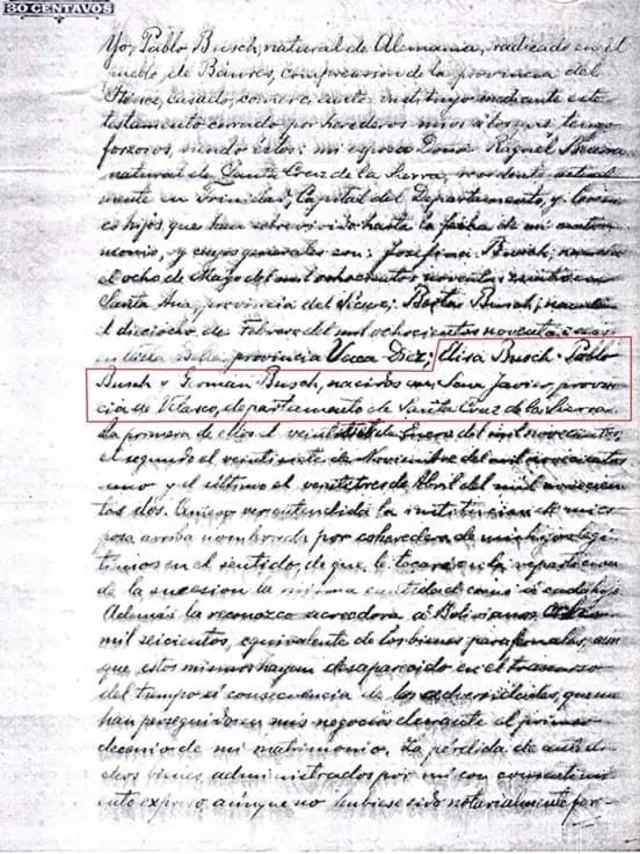 80 CENTAVOS
Yo, Pablo Busch, natural de Alemania, radicado en el
pueblo de Baures, comprension de la provincia del
Itenez, casado, comerciante instituyo mediante este
testamento cerrado por herederos mios á los que tengo
forzosos, siendo estos: mi esposa Doña Raquel Becerra
natural de Santa Cruz de la Sierra, residente actual
mente en Trinidad, Capital del Departamento, y
hijos, que han sobrevivido hasta la fecha de mi matri
monio, y cuyos generales son: Josefina Busch; nacida
el ocho de Mayo del mil ochocientos noventa en
Santa Ana, provincia del Busch; nacida
el dieciocho de Febrero del mil ochocientos noventa
provincia Vaca Diez; Elisa Busch Pablo
Busch y German Busch, nacidos en San Javier, provin
cia de Velasco, departamento de Santa Cruz de la Sierra
la primera de ellos el de Enero del mil novecientos,
el segundo el veintisiete de Noviembre del mil novecientos
uno y el último el veintitres de Abril del mil novecien
tos dos. la institucion de mi es
posa arriba nombrada por coheredera de mis hijos legi
timos en el sentido, de que le tocará en la reparticion
de la sucesion la misma cantidad como á cada hijo
Además la reconozco acreedora á Bolivianos
mil seicientos, equivalente de los bienes parafernales, aun
que estos mismos hayan desaparecido en el trascurso
del tiempo á consecuencia de las adversidades, que me
han perseguido en mis negocios durante el primer
decenio de mi matrimonio. La pérdida de
chos bienes, administrados por mi con consentimi
ento expreso, aúnque no hubiese sido notarialmente for-